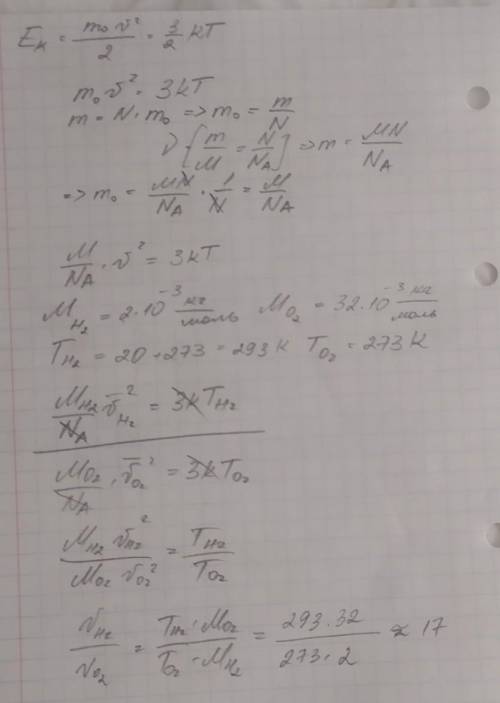 Eк = m₀v²/2 = 3/2 kT
m₀v² = 3kT
m = N·m₀ => m₀ = m/N
ν [m/M = N/NA] => m = MN/NA
=> m₀ = MN/NA · 1/N = M/NA
M/NA · v² = 3kT
M H₂ = 2·10⁻³ кг/моль M O₂ = 32·10⁻³ кг/моль
T H₂ = 20+273 = 293 K T O₂ = 273 K
M H₂/NA v̅ H₂² = 3kT H₂
M O₂/NA · v̅ O₂² = 3kT O₂
M H₂ v̅ H₂²/M O₂ v̅ O₂² = T H₂/T O₂
v H₂/v O₂ = T H₂·M O₂/T O₂·M H₂ = 293·32/273·2 ≈ 17